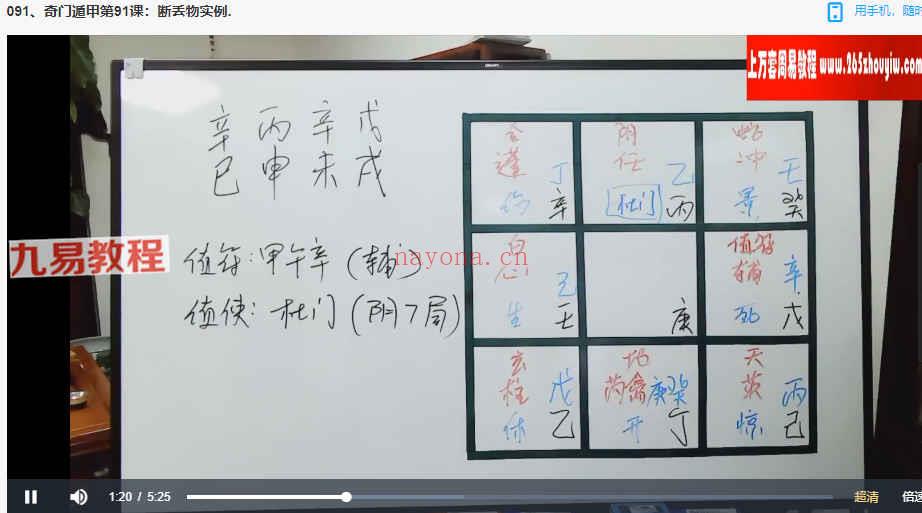 091、奇门遁甲第91课：断丢物实例.
用手机，随时
上万套周易教程 www.265zhouyiw.com
辛 丙 辛 戊
巳 申 未 戌
九易教程
nayona.cn
值符：甲午辛（辅）
值使：杜门（阴7局）
合 阴 蛇
蓬 丁 任 乙 冲 壬
伤 辛 杜门 丙 景 癸
白 值符
心 己 辅 辛
生 壬 庚 死 戊
玄 地 天
柱 戊 芮禽 庚 癸 英 丙
休 乙 开 丁 惊 己
1:20 / 5:25
超清
倍速